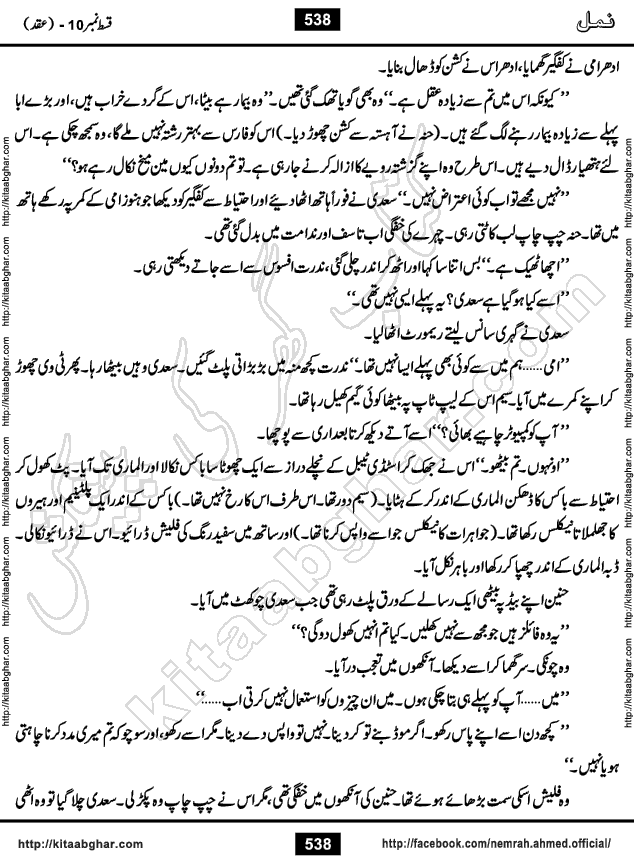 قسط نمبر 10 - (عقد)
538
نمل
ادھر امی نے کفگیر گھمایا، ادھر اس نے کشن کو ڈھال بنایا۔
’’کیونکہ اس میں تم سے زیادہ عقل ہے۔‘‘ وہ بھی گویا تھک گئی تھیں۔ ’’وہ بیمار ہے بیٹا، اس کے گردے خراب ہیں، اور بڑے ابا
پہلے سے زیادہ بیمار رہنے لگ گئے ہیں۔ (حنہ نے آہستہ سے کشن چھوڑ دیا۔) اس کو فارس سے بہتر رشتہ نہیں ملے گا، وہ سمجھ چکی ہے۔ اس
لئے ہتھیار ڈال دیے ہیں۔ اس طرح وہ اپنے گزشتہ رویے کا ازالہ کرنے جا رہی ہے۔ تو تم دونوں کیوں مین میخ نکال رہے ہو؟‘‘
’’نہیں مجھے تو اب کوئی اعتراض نہیں۔‘‘ سعدی نے فوراً ہاتھ اٹھا دیئے اور احتیاط سے کفگیر کو دیکھا جو ہنوز امی کے کمر پہ رکھے ہاتھ
میں تھا۔ حنہ چپ چاپ لب کاٹتی رہی۔ چہرے کی خفگی اب تاسف اور ندامت میں بدل گئی تھی۔
’’اچھا ٹھیک ہے۔‘‘ بس اتنا سا کہا اور اٹھ کر اندر چلی گئی، ندرت افسوس سے اسے جاتے دیکھتی رہی۔
’’اسے کیا ہو گیا ہے سعدی؟ یہ پہلے ایسی نہیں تھی۔‘‘
سعدی نے گہری سانس لیتے ریموٹ اٹھا لیا۔
’’امی......ہم میں سے کوئی بھی پہلے ایسا نہیں تھا۔‘‘ ندرت کچھ منہ میں بڑبڑاتی پلٹ گئیں۔ سعدی وہیں بیٹھا رہا۔ پھر ٹی وی چھوڑ
کر اپنے کمرے میں آیا۔ سیم اس کے لیپ ٹاپ پہ بیٹھا کوئی گیم کھیل رہا تھا۔
’’آپ کو کمپیوٹر چاہیے بھائی؟‘‘ اسے آتے دیکھ کر تابعداری سے پوچھا۔
’’اونہوں۔ تم بیٹھو۔‘‘ اس نے جھک کر اسٹڈی ٹیبل کے نچلے دراز سے ایک چھوٹا سا باکس نکالا اور الماری تک آیا۔ پٹ کھول کر
احتیاط سے باکس کا ڈھکن الماری کے اندر کر کے ہٹایا۔ (سیم دور تھا۔ اس طرف اس کا رخ نہیں تھا۔) باکس کے اندر ایک پلٹینیم اور ہیروں
کا جھلملاتا نیکلس رکھا تھا۔ (جواہرات کا نیکلس جو اسے واپس کرنا تھا۔) اور ساتھ میں سفید رنگ کی فلیش ڈرائیو۔ اس نے ڈرائیو نکالی۔
ڈبہ الماری کے اندر چھپا کر رکھا اور باہر نکل آیا۔
حنین اپنے بیڈ پہ بیٹھی ایک رسالے کے ورق پلٹ رہی تھی جب سعدی چوکھٹ میں آیا۔
’’یہ وہ فائلز ہیں جو مجھ سے نہیں کھلیں۔ کیا تم انہیں کھول دو گی؟‘‘
وہ چونکی۔ سر گھما کر اسے دیکھا۔ آنکھوں میں تعجب در آیا۔
’’میں......آپ کو پہلے ہی بتا چکی ہوں۔ میں ان چیزوں کو استعمال نہیں کرتی اب......‘‘
’’کچھ دن اسے اپنے پاس رکھو۔ اگر موڈ بنے تو کر دینا۔ نہیں تو واپس دے دینا۔ مگر اسے رکھو، اور سوچو کہ تم میری مدد کرنا چاہتی
ہو یا نہیں۔‘‘
وہ فلیش اسکی سمت بڑھائے ہوئے تھا۔ حنین کی آنکھوں میں خفگی تھی، مگر اس نے چپ چاپ وہ پکڑ لی۔ سعدی چلا گیا تو وہ اٹھی
http://kitaabghar.com
http://kitaabghar.com
http://kitaabghar.com
http://kitaabghar.com
http://kitaabghar.com
http://kitaabghar.com
http://kitaabghar.com
http://kitaabghar.com
http://kitaabghar.com
http://kitaabghar.com
http://kitaabghar.com
http://kitaabghar.com
کتاب گھر کی پیشکش
kitaabghar.com
http://kitaabghar.com
538
http://facebook.com/nemrah.ahmed.official/